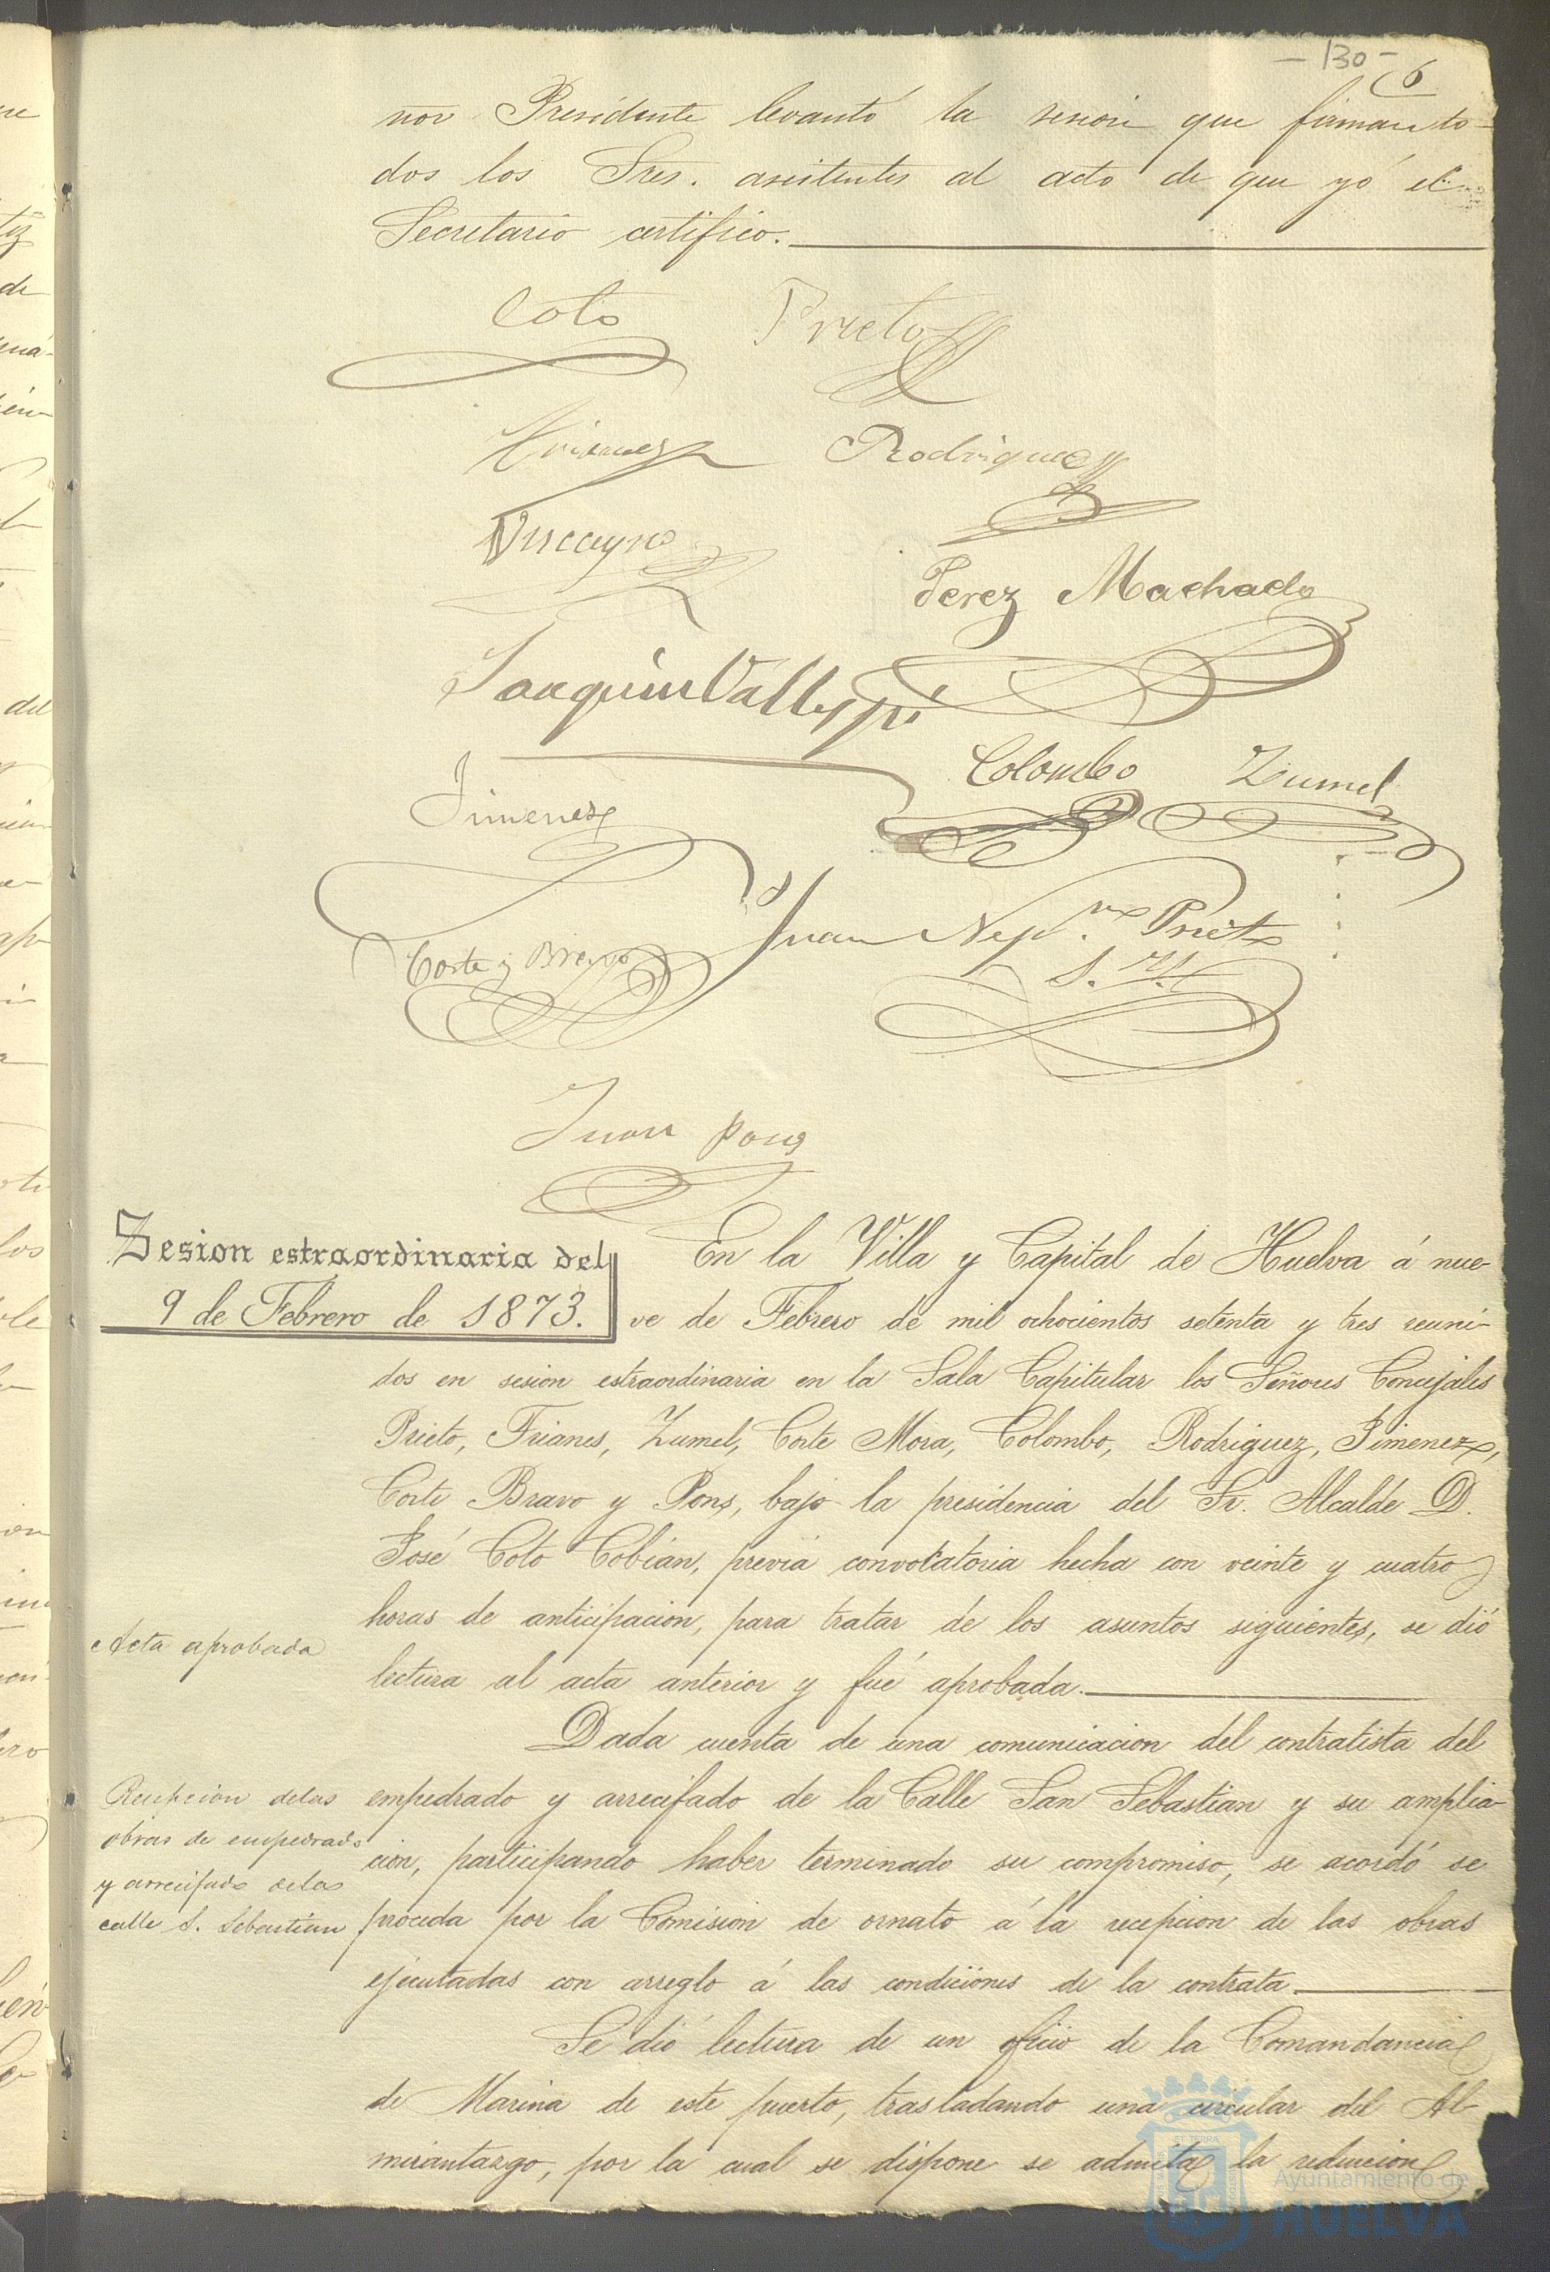 - 130 -
6
nor Presidente levantó la sesion que firman to-
dos los Sres. asistentes al acto de que yó el
Secretario certifico.
Coto Prieto
Rodriguez
Viscayno
Perez Machado
Joaquin Vallespi
Colombo Zumel
Jimenez
Juan Nepno. Prieto
Corte y Bravo
Juan Pons
Sesion estraordinaria del
9 de Febrero de 1873.
En la Villa y Capital de Huelva á nue-
ve de Febrero de mil ochocientos setenta y tres reuni-
dos en sesion estraordinaria en la Sala Capitular los Señores Concejales
Prieto, Frianes, Zumel, Corte Mora, Colombo, Rodriguez, Jimenez,
Corte Bravo y Pons, bajo la presidencia del Sr. Alcalde D.
José Coto Cobian, previa convocatoria hecha con veinte y cuatro
horas de anticipacion, para tratar de los asuntos siguientes, se dió
Acta aprobada
lectura al acta anterior y fué aprobada.
Dada cuenta de una comunicacion del contratista del
Recepcion delas
obras de empedrado
y arrecifado delas
calle S. Sebastian
empedrado y arrecifado de la Calle San Sebastian y su amplia-
cion, participando haber terminado su compromiso, se acordó se
proceda por la Comision de ornato á la recepcion de las obras
ejecutadas con arreglo á las condiciones de la contrata.
Se dió lectura de un oficio de la Comandancia
de Marina de este puerto, trasladando una circular del Al-
mirantazgo, por la cual se dispone se admita la redencion
Ayuntamiento de
HUELVA